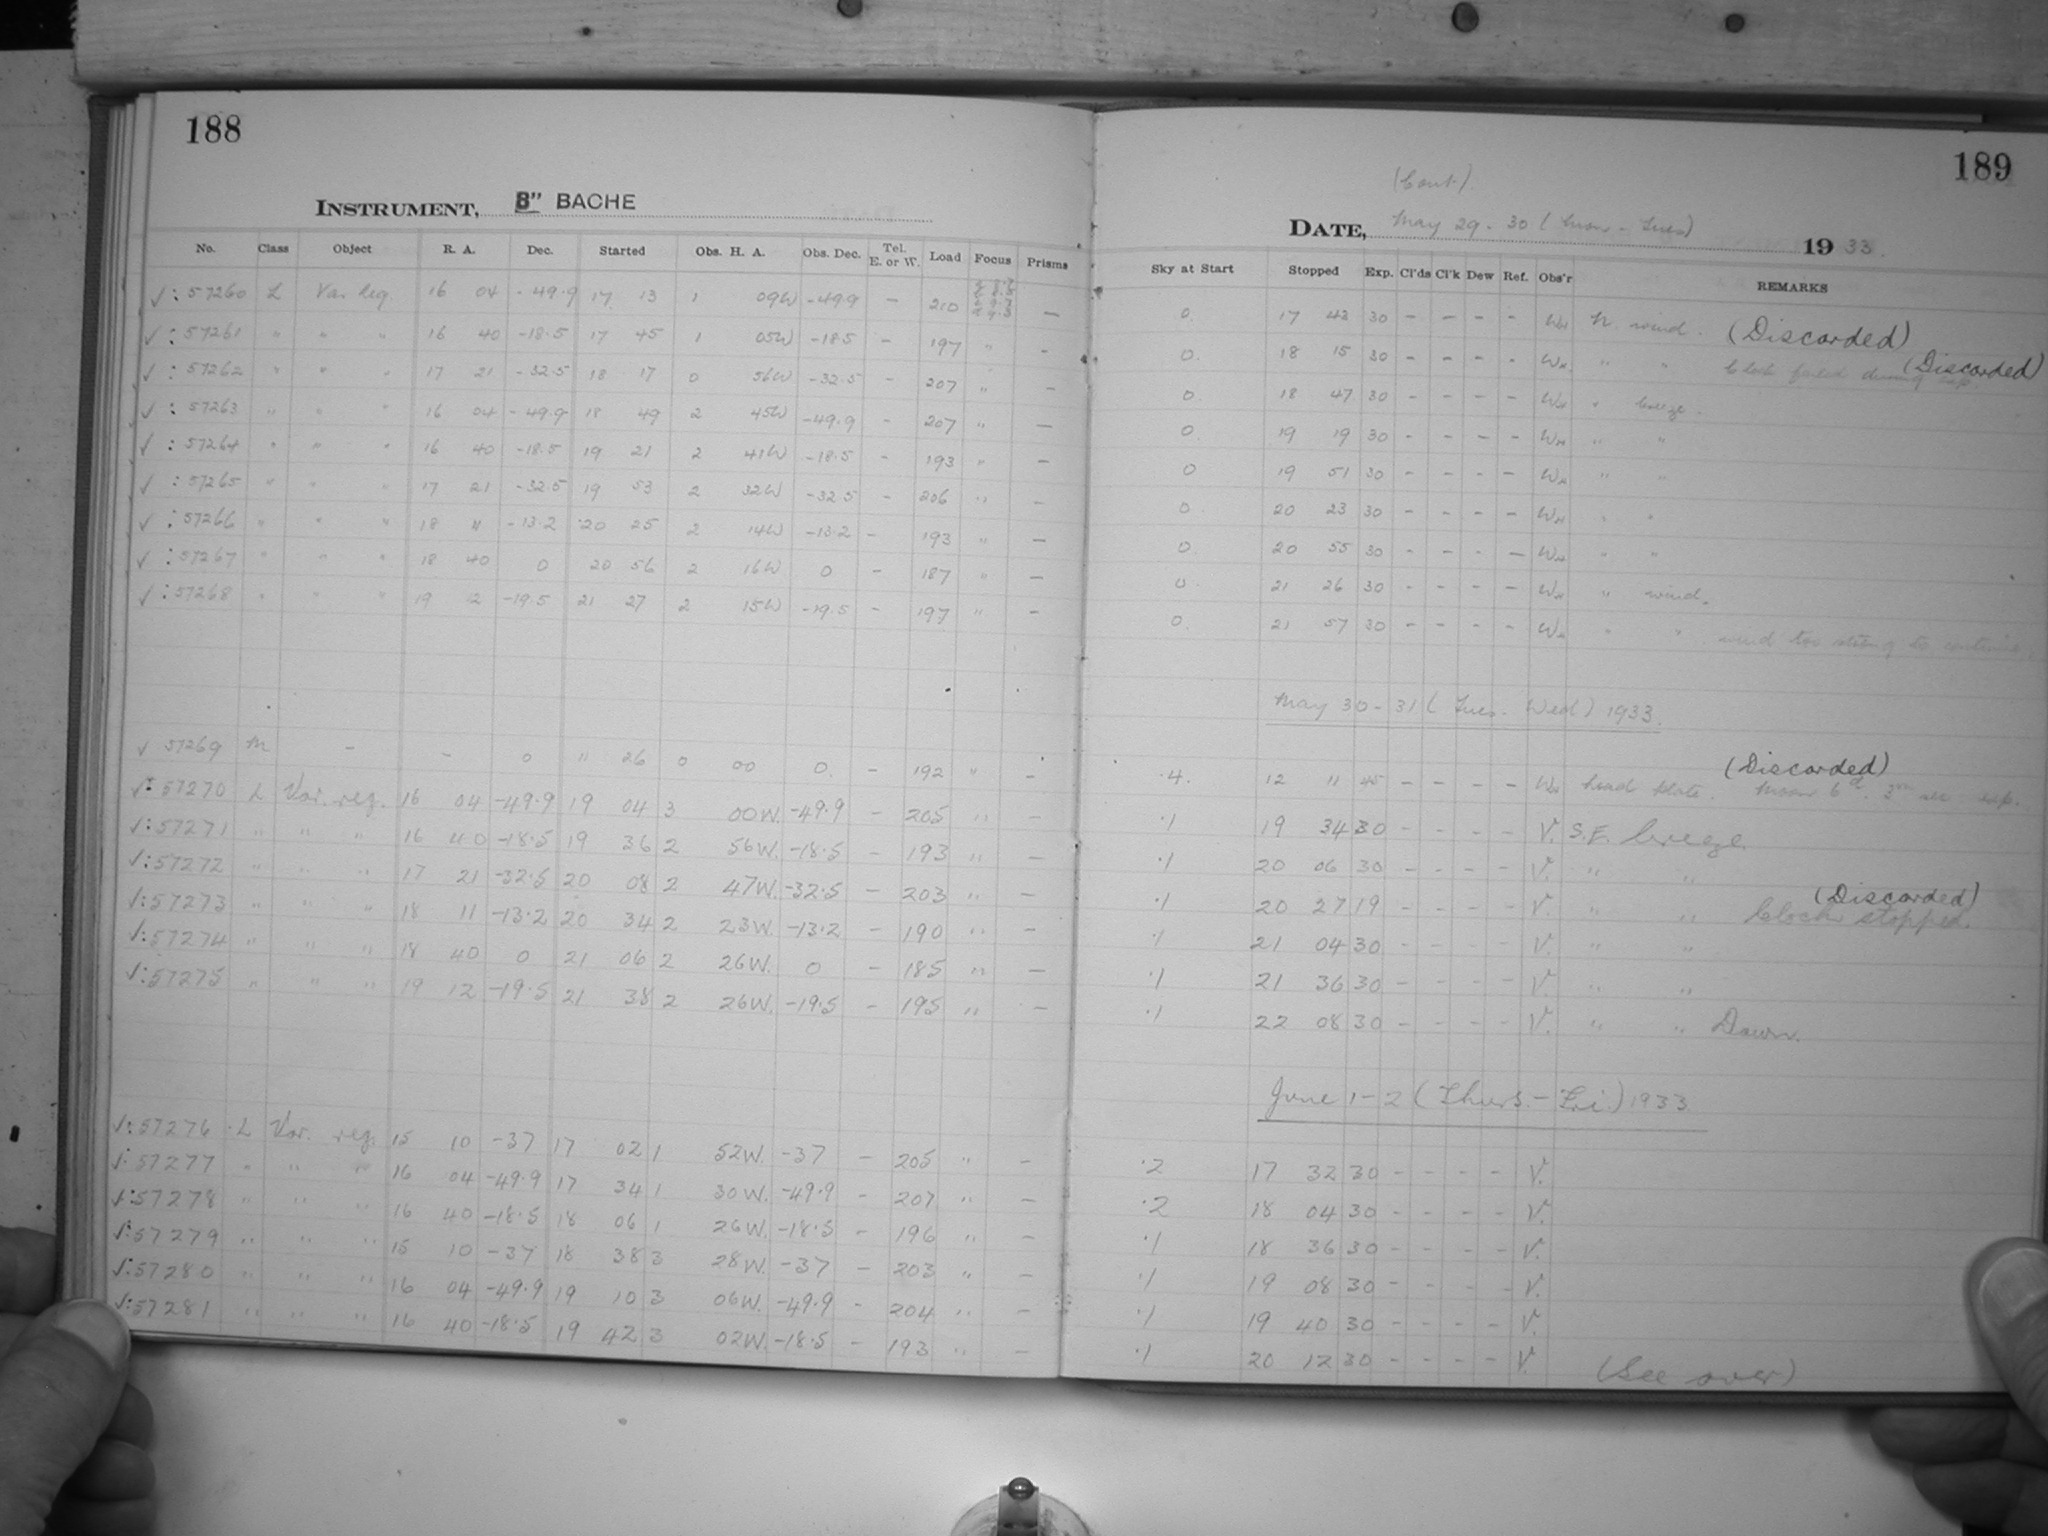 188
INSTRUMENT, 8" BACHE
No. Class Object R. A. Dec. Started Obs. H. A. Obs. Dec. Tel. E. or W. Load Focus Prisms
✓: 57260 L Var. reg. 16 04 -49.9 17 13 1 09W -49.9 - 210 -
✓: 57261 " " " 16 40 -18.5 17 45 1 05W -18.5 - 197 " -
✓: 57262 " " " 17 21 -32.5 18 17 0 56W -32.5 - 207 " -
✓: 57263 " " " 16 04 -49.9 18 49 2 45W -49.9 - 207 " -
✓: 57264 " " " 16 40 -18.5 19 21 2 41W -18.5 - 193 " -
✓: 57265 " " " 17 21 -32.5 19 53 2 32W -32.5 - 206 " -
✓: 57266 " " " 18 11 -13.2 20 25 2 14W -13.2 - 193 " -
✓: 57267 " " " 18 40 0 20 56 2 16W 0 - 187 " -
✓: 57268 " " " 19 12 -19.5 21 27 2 15W -19.5 - 197 " -
✓ 57269 M - - 0 11 26 0 00 0. - 192 " -
✓: 57270 L Var. reg. 16 04 -49.9 19 04 3 00W. -49.9 - 205 " -
✓: 57271 " " " 16 40 -18.5 19 36 2 56W. -18.5 - 193 " -
✓: 57272 " " " 17 21 -32.5 20 08 2 47W. -32.5 - 203 " -
✓: 57273 " " " 18 11 -13.2 20 34 2 23W. -13.2 - 190 " -
✓: 57274 " " " 18 40 0 21 06 2 26W. 0 - 185 " -
✓: 57275 " " " 19 12 -19.5 21 38 2 26W. -19.5 - 195 " -
✓: 57276 L Var. reg. 15 10 -37 17 02 1 52W. -37 - 205 " -
✓: 57277 " " " 16 04 -49.9 17 34 1 30W. -49.9 - 207 " -
✓: 57278 " " " 16 40 -18.5 18 06 1 26W. -18.5 - 196 " -
✓: 57279 " " " 15 10 -37 18 38 3 28W. -37 - 203 " -
✓: 57280 " " " 16 04 -49.9 19 10 3 06W. -49.9 - 204 " -
✓: 57281 " " " 16 40 -18.5 19 42 3 02W. -18.5 - 193 " -
189
(Cont.)
DATE, May 29-30 (Mon - Tues) 1933.
Sky at Start Stopped Exp. Cl'ds Cl'k Dew Ref. Obs'r REMARKS
0. 17 43 30 - - - - WH N. wind. (Discarded)
0. 18 15 30 - - - - WH " " Clock failed during exp. (Discarded)
0. 18 47 30 - - - - WH " breeze.
0. 19 19 30 - - - - WH " "
0 19 51 30 - - - - WH " "
0 20 23 30 - - - - WH " "
0 20 55 30 - - - - WH " "
0. 21 26 30 - - - - WH " wind.
0. 21 57 30 - - - - WH " " wind too strong to continue.
May 30-31 (Tues - Wed) 1933.
.4. 12 11 45 - - - - WH (Discarded)
.1 19 34 30 - - - - V. S.E. breeze.
.1 20 06 30 - - - - V. " "
.1 20 27 19 - - - - V. " " Clock stopped. (Discarded)
.1 21 04 30 - - - - V. " "
.1 21 36 30 - - - - V. " "
.1 22 08 30 - - - - V. " " Dawn.
June 1-2 (Thurs. - Fri.) 1933
.2 17 32 30 - - - - V.
.2 18 04 30 - - - - V.
.1 18 36 30 - - - - V.
.1 19 08 30 - - - - V.
.1 19 40 30 - - - - V.
.1 20 12 30 - - - - V.
(See over)